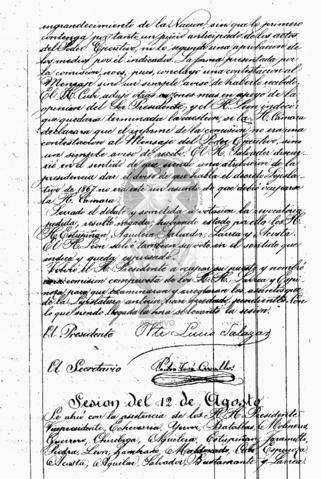 engrandecimiento de la Nacion, sin que lo primero
contenga, por tanto un juicio anticipado de los actos
del Poder Ejecutivo, ni lo segundo una aprobacion de
los medios por él indicados. La forma presentada por
la comision, no es, pues, concluyo una contestacion al
Mensaje sino un simple aviso de haberlo recibido.
El H. Cabo, adujo otras razones mas en apoyo de la
opinion del Sor Presidente, y el H. Leon indicó
que quedaria terminada la cuestion, si la H. Cámara
declarara que el informe de la comision no era una
contestacion al Mensaje del Poder Ejecutivo, sino
un simple aviso de recibo. El H. Salvador
en el sentido de que
presidencia dar el aviso de que habla el decreto Legisla-
tivo de 1867 no era este un asunto de que debia ocuparse
la H. Cámara.
Cerrado el debate y sometida a votacion la revocatoria
pedida, resultó negada, habiendo estado por ella los H.
H. Estupiñan, Aguilera, Salvador, Larrea y Acosta.
El H. Leon salvó tambien su voto en el sentido que
indica y queda expresado.
Volvió el H. Presidente a ocupar su puesto y nombró
una comision compuesta de los H. H. Larrea y Espi-
nosa, para que examinaran y arreglaran los asuntos que
de la Legislatura anterior, han quedado pendientes. Con
lo que siendo llegada la hora se levantó la sesion.
El Presidente
Lucio Salazar
El Secretario
Sesion del 12 de Agosto
Se abrió con la asistencia de los H. H. Presidente,
Vicepresidente, Echeverria, Yerovi, Batallas, Molineros,
Guerrero, Chiriboga, Aguilera, Estupiñan, Jaramillo,
Piedra, Leon, Zambrano, Maldonado, Cabo, Espinosa,
Acosta, Aguilar, Salvador, Bustamante y Larrea.